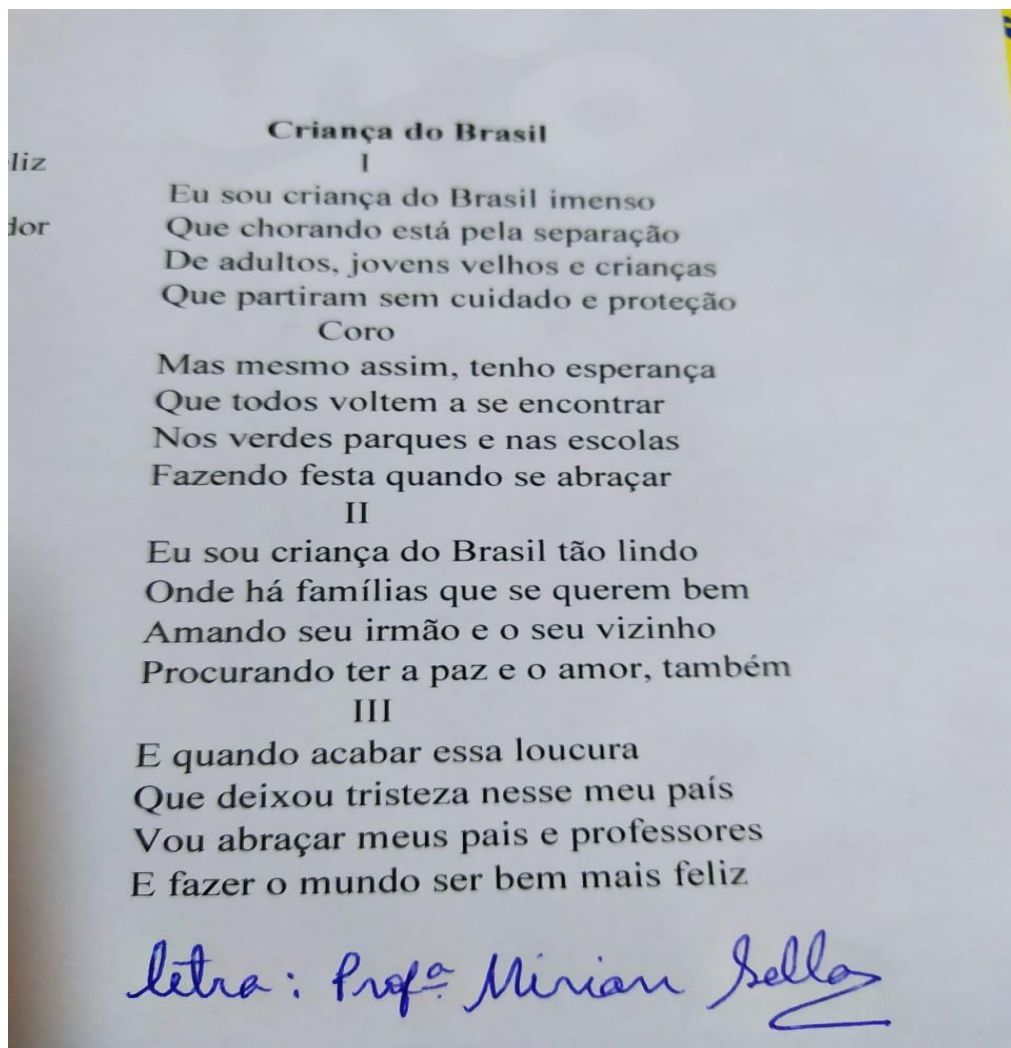 Criança do Brasil
I
liz
Eu sou criança do Brasil imenso
dor
Que chorando está pela separação
De adultos, jovens velhos e crianças
Que partiram sem cuidado e proteção
Coro
Mas mesmo assim, tenho esperança
Que todos voltem a se encontrar
Nos verdes parques e nas escolas
Fazendo festa quando se abraçar
II
Eu sou criança do Brasil tão lindo
Onde há famílias que se querem bem
Amando seu irmão e o seu vizinho
Procurando ter a paz e o amor, também
III
E quando acabar essa loucura
Que deixou tristeza nesse meu país
Vou abraçar meus pais e professores
E fazer o mundo ser bem mais feliz
letra: Profª Mirian